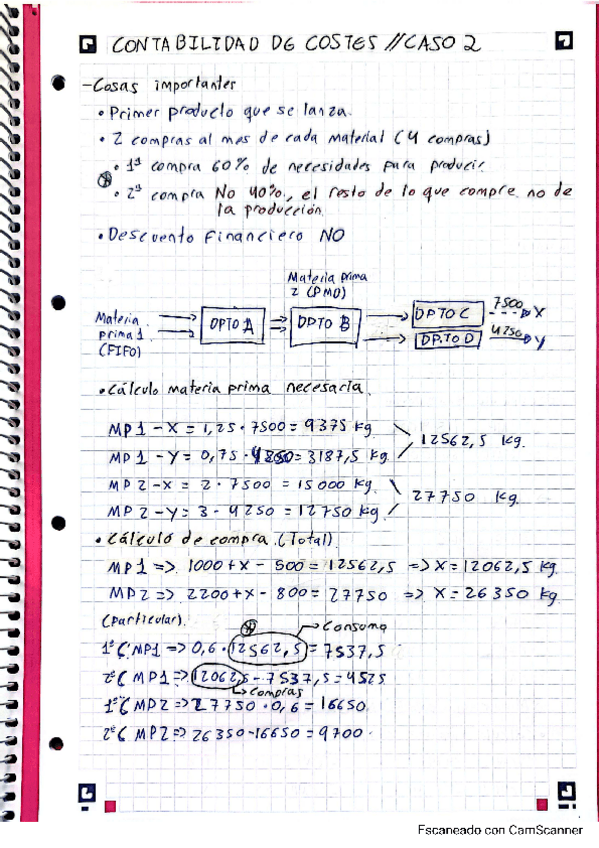 CONTABILIDAD DE COSTES // CASO 2
- Cosas importantes
• Primer producto que se lanza.
• 2 compras al mes de cada material (4 compras)
• 1ª compra 60% de necesidades para producir
• 2ª compra No 40%, el resto de lo que compre no de
la producción.
• Descuento financiero NO
Materia prima
2 (PMP)
Materia
prima 1
(FIFO)
DPTO A
DPTO B
DPTO C
7500
X
DPTO D
4250
Y
• Cálculo materia prima necesaria.
MP1 - X = 1,25 · 7500 = 9375 kg
MP1 - Y = 0,75 · 4250 = 3187,5 kg
12562,5 kg.
MP2 - X = 2 · 7500 = 15000 kg
MP2 - Y = 3 - 4250 = 12750 kg
27750 kg.
• Cálculo de compra (Total)
MP1 => 1000 + X - 500 = 12562,5 => X = 12062,5 kg
MP2 => 2200 + X - 800 = 27750 => X = 26350 kg
(Particular).
Consumo
1ª C MP1 => 0,6 · 12562,5 = 7537,5
2ª C MP1 => 12062,5 - 7537,5 = 4525
Compras
1ª C MP2 => 27750 · 0,6 = 16650
2ª C MP2 => 26350 - 16650 = 9700
Escaneado con CamScanner